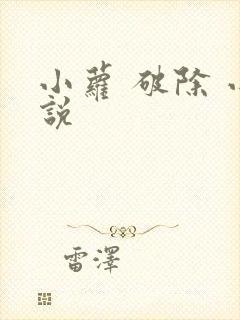 小蘿 破除 小
說
雷澤